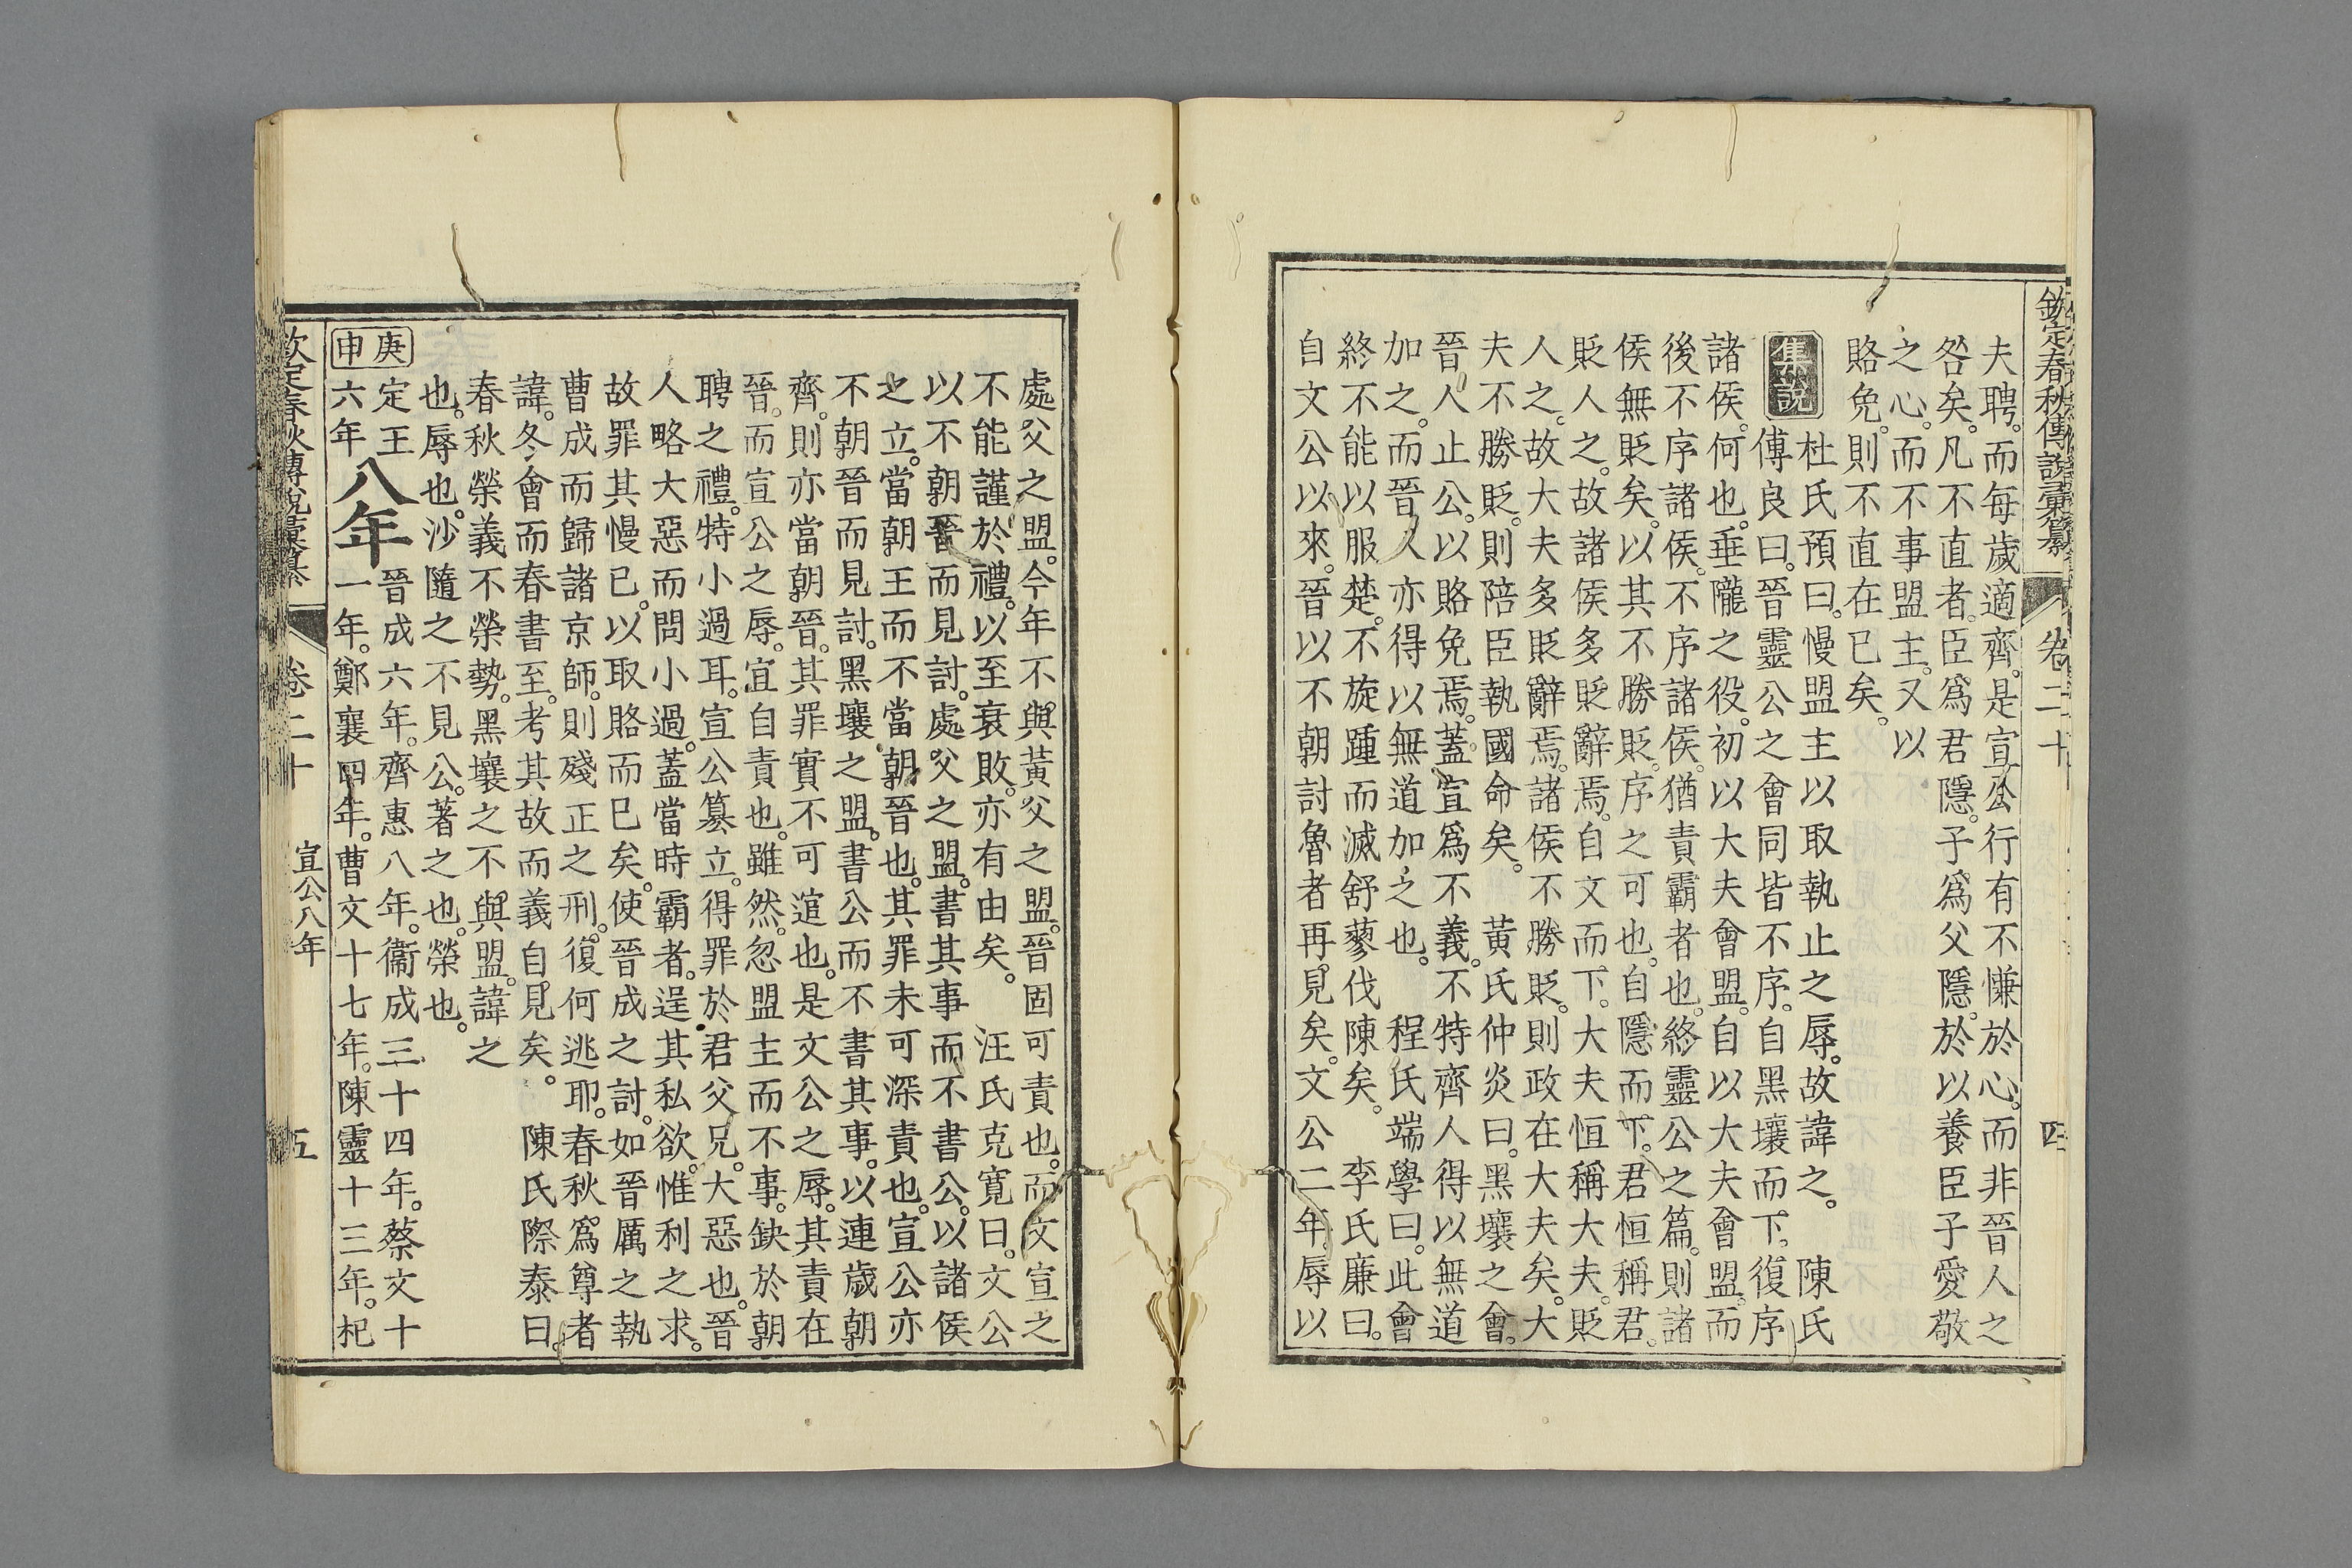 欽定春秋傳說彙纂 卷二十 四
夫聘。而每歲適齊。是宣公行有不慊於心。而非晉人之
咎矣。凡不直者。臣爲君隱。子爲父隱。於以養臣子愛敬
之心。而不事盟主。又以
賂免。則不直在已矣。
集說 杜氏預曰。慢盟主以取執止之辱。故諱之。 陳氏
傅良曰。晉靈公之會同皆不序。自黑壤而下。復序
諸侯。何也。垂隴之役。初以大夫會盟。自以大夫會盟。而
後不序諸侯。不序諸侯。猶責霸者也。終靈公之篇。則諸
侯無貶矣。以其不勝貶。序之可也。自隱而下。君恒稱君。
貶人之。故諸侯多貶辭焉。自文而下。大夫恒稱大夫。貶
人之。故大夫多貶辭焉。諸侯不勝貶。則政在大夫矣。大
夫不勝貶。則陪臣執國命矣。 黃氏仲炎曰。黑壤之會。
晉人止公。以賂免焉。蓋宣爲不義。不特齊人得以無道
加之。而晉人亦得以無道加之也。 程氏端學曰。此會
終不能以服楚。不旋踵而滅舒蓼伐陳矣。 李氏廉曰。
自文公以來。晉以不朝討魯者再見矣。文公二年。辱以
處父之盟。今年不與黃父之盟。晉固可責也。而文宣之
不能謹於禮。以至衰敗。亦有由矣。 汪氏克寬曰。文公
以不朝晉而見討。處父之盟。書其事而不書公。以諸侯
之立。當朝王而不當朝晉也。其罪未可深責也。宣公亦
不朝晉而見討。黑壤之盟。書公而不書其事。以連歲朝
齊。則亦當朝晉。其罪實不可逭也。是文公之辱。其責在
晉。而宣公之辱。宜自責也。雖然。忽盟主而不事。缺於朝
聘之禮。特小過耳。宣公篡立。得罪於君父兄。大惡也。晉
人略大惡而問小過。蓋當時霸者。逞其私欲。惟利之求。
故罪其慢已。以取賂而已矣。使晉成之討。如晉厲之執
曹成而歸諸京師。則殘正之刑。復何逃耶。春秋爲尊者
諱。冬會而春書至。考其故而義自見矣。 陳氏際泰曰。
春秋榮義不榮勢。黑壤之不與盟。諱之
也。辱也。沙隨之不見公。著之也。榮也。
庚申 定王六年 八年 晉成六年。齊惠八年。衞成三十四年。蔡文十
一年。鄭襄四年。曹文十七年。陳靈十三年。杞
欽定春秋傳說彙纂 卷二十 宣公八年 五